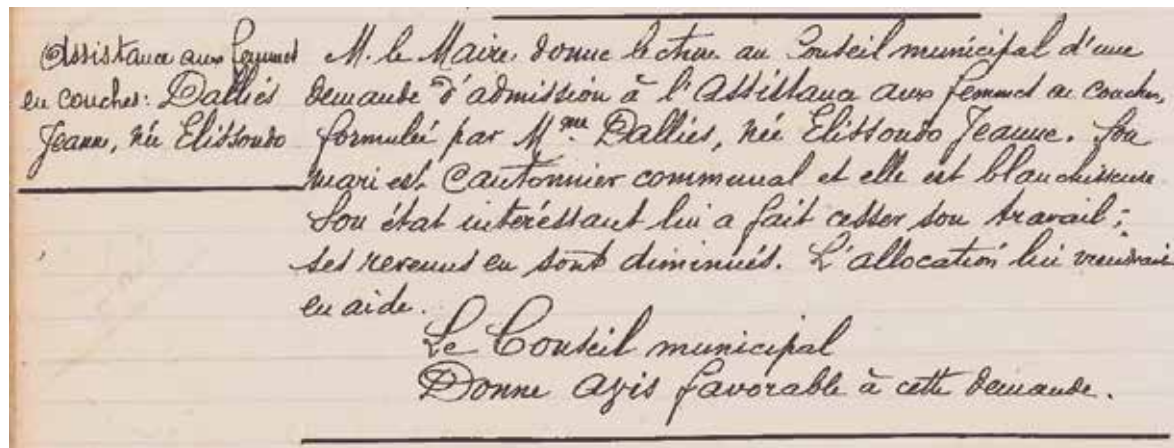 Assistance aux femmes
en couches: Dalliés
Jeanne, née Elissondo
M. le Maire donne lecture au Conseil municipal d'une
demande d'admission à l'Assistance aux femmes en couches,
formulée par Mme Dalliés, née Elissondo Jeanne. Son
mari est cantonnier communal et elle est blanchisseuse
Son état intéressant lui a fait cesser son travail;
ses revenus en sont diminués. L'allocation lui viendrait
en aide.
Le Conseil municipal
Donne avis favorable à cette demande.